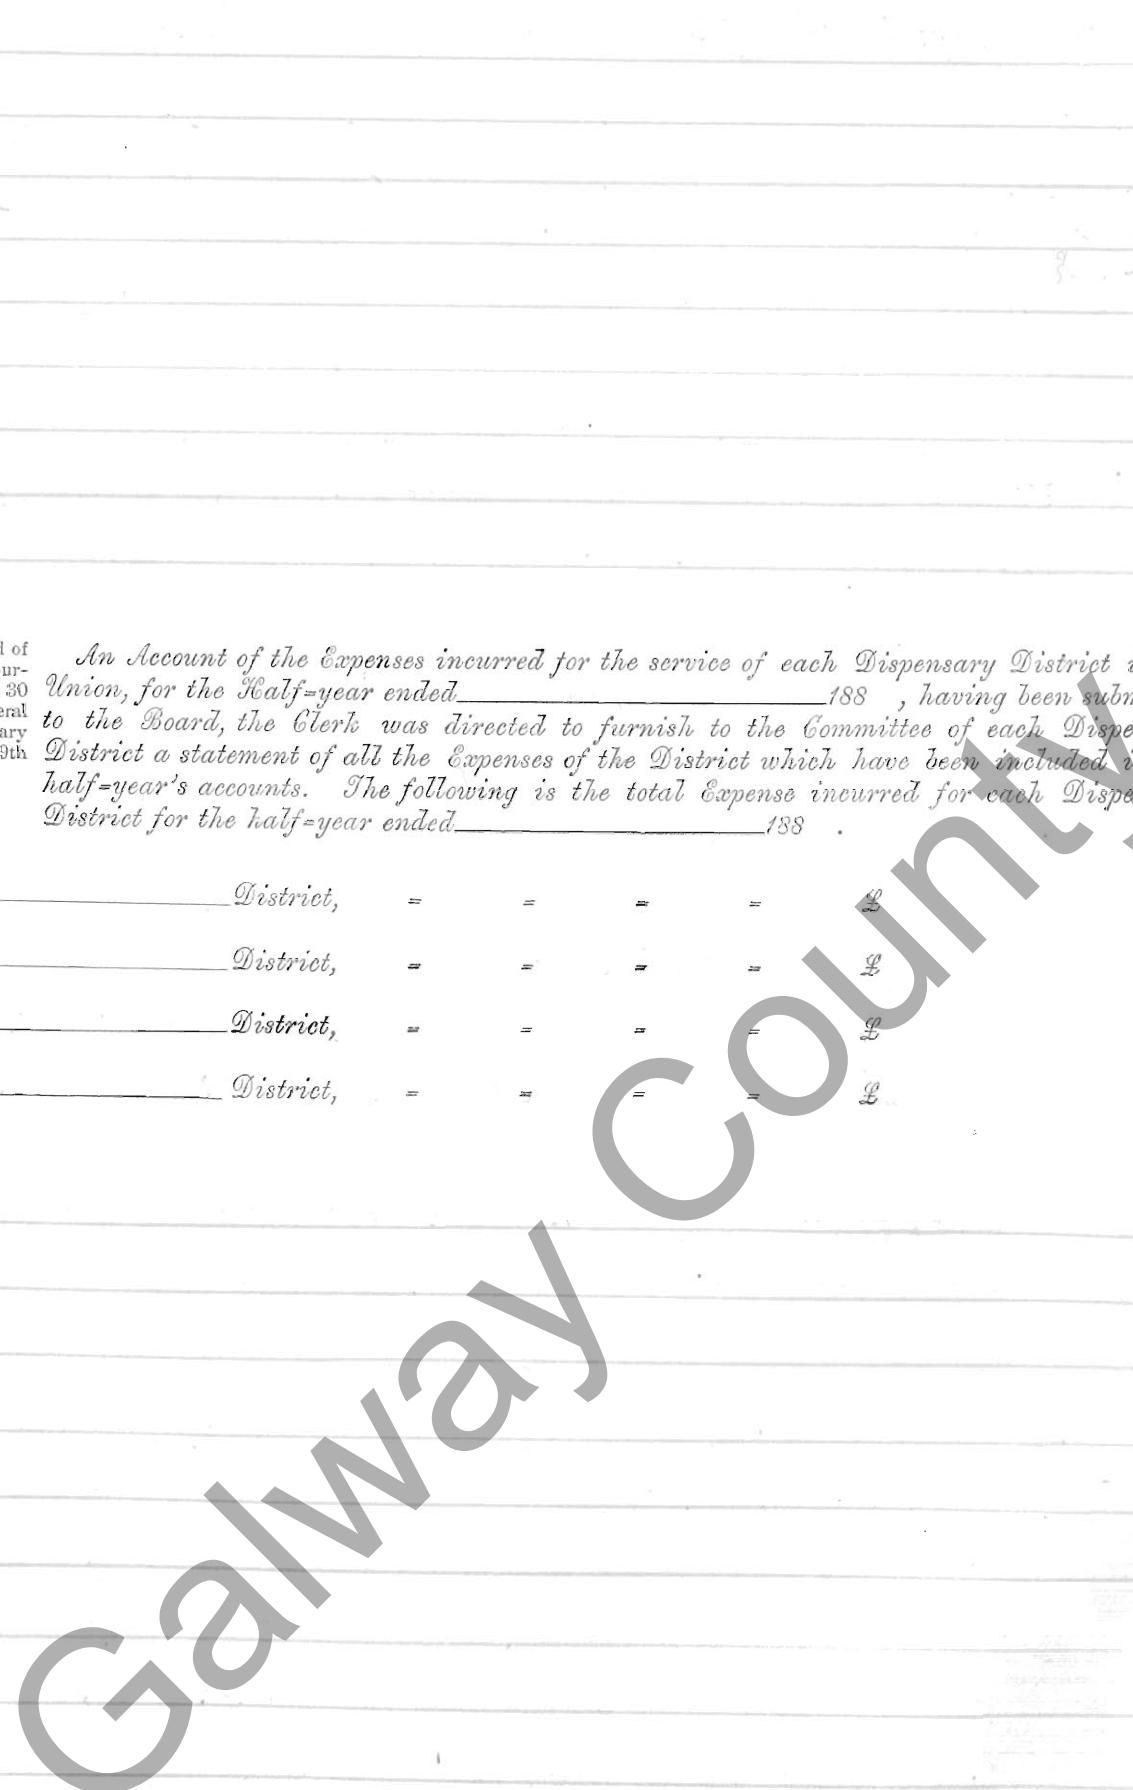 l of
ur-
30
eral
ary
9th
An Account of the Expenses incurred for the service of each Dispensary District
Union, for the Half=year ended 188 , having been subm
to the Board, the Clerk was directed to furnish to the Committee of each Dispe
District a statement of all the Expenses of the District which have been included i
half=year's accounts. The following is the total Expense incurred for each Dispe
District for the half=year ended 188 .
District, = = = = £
District, = = = = £
District, = = = = £
District, = = = = £
Galway County